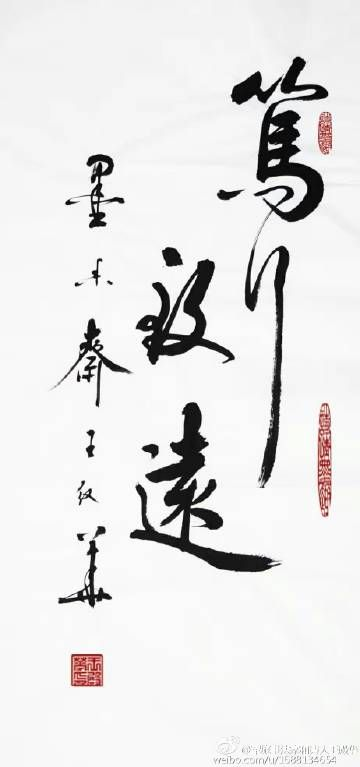 篤行
致遠
墨木齋王
華
weibo.com/u/1588134654